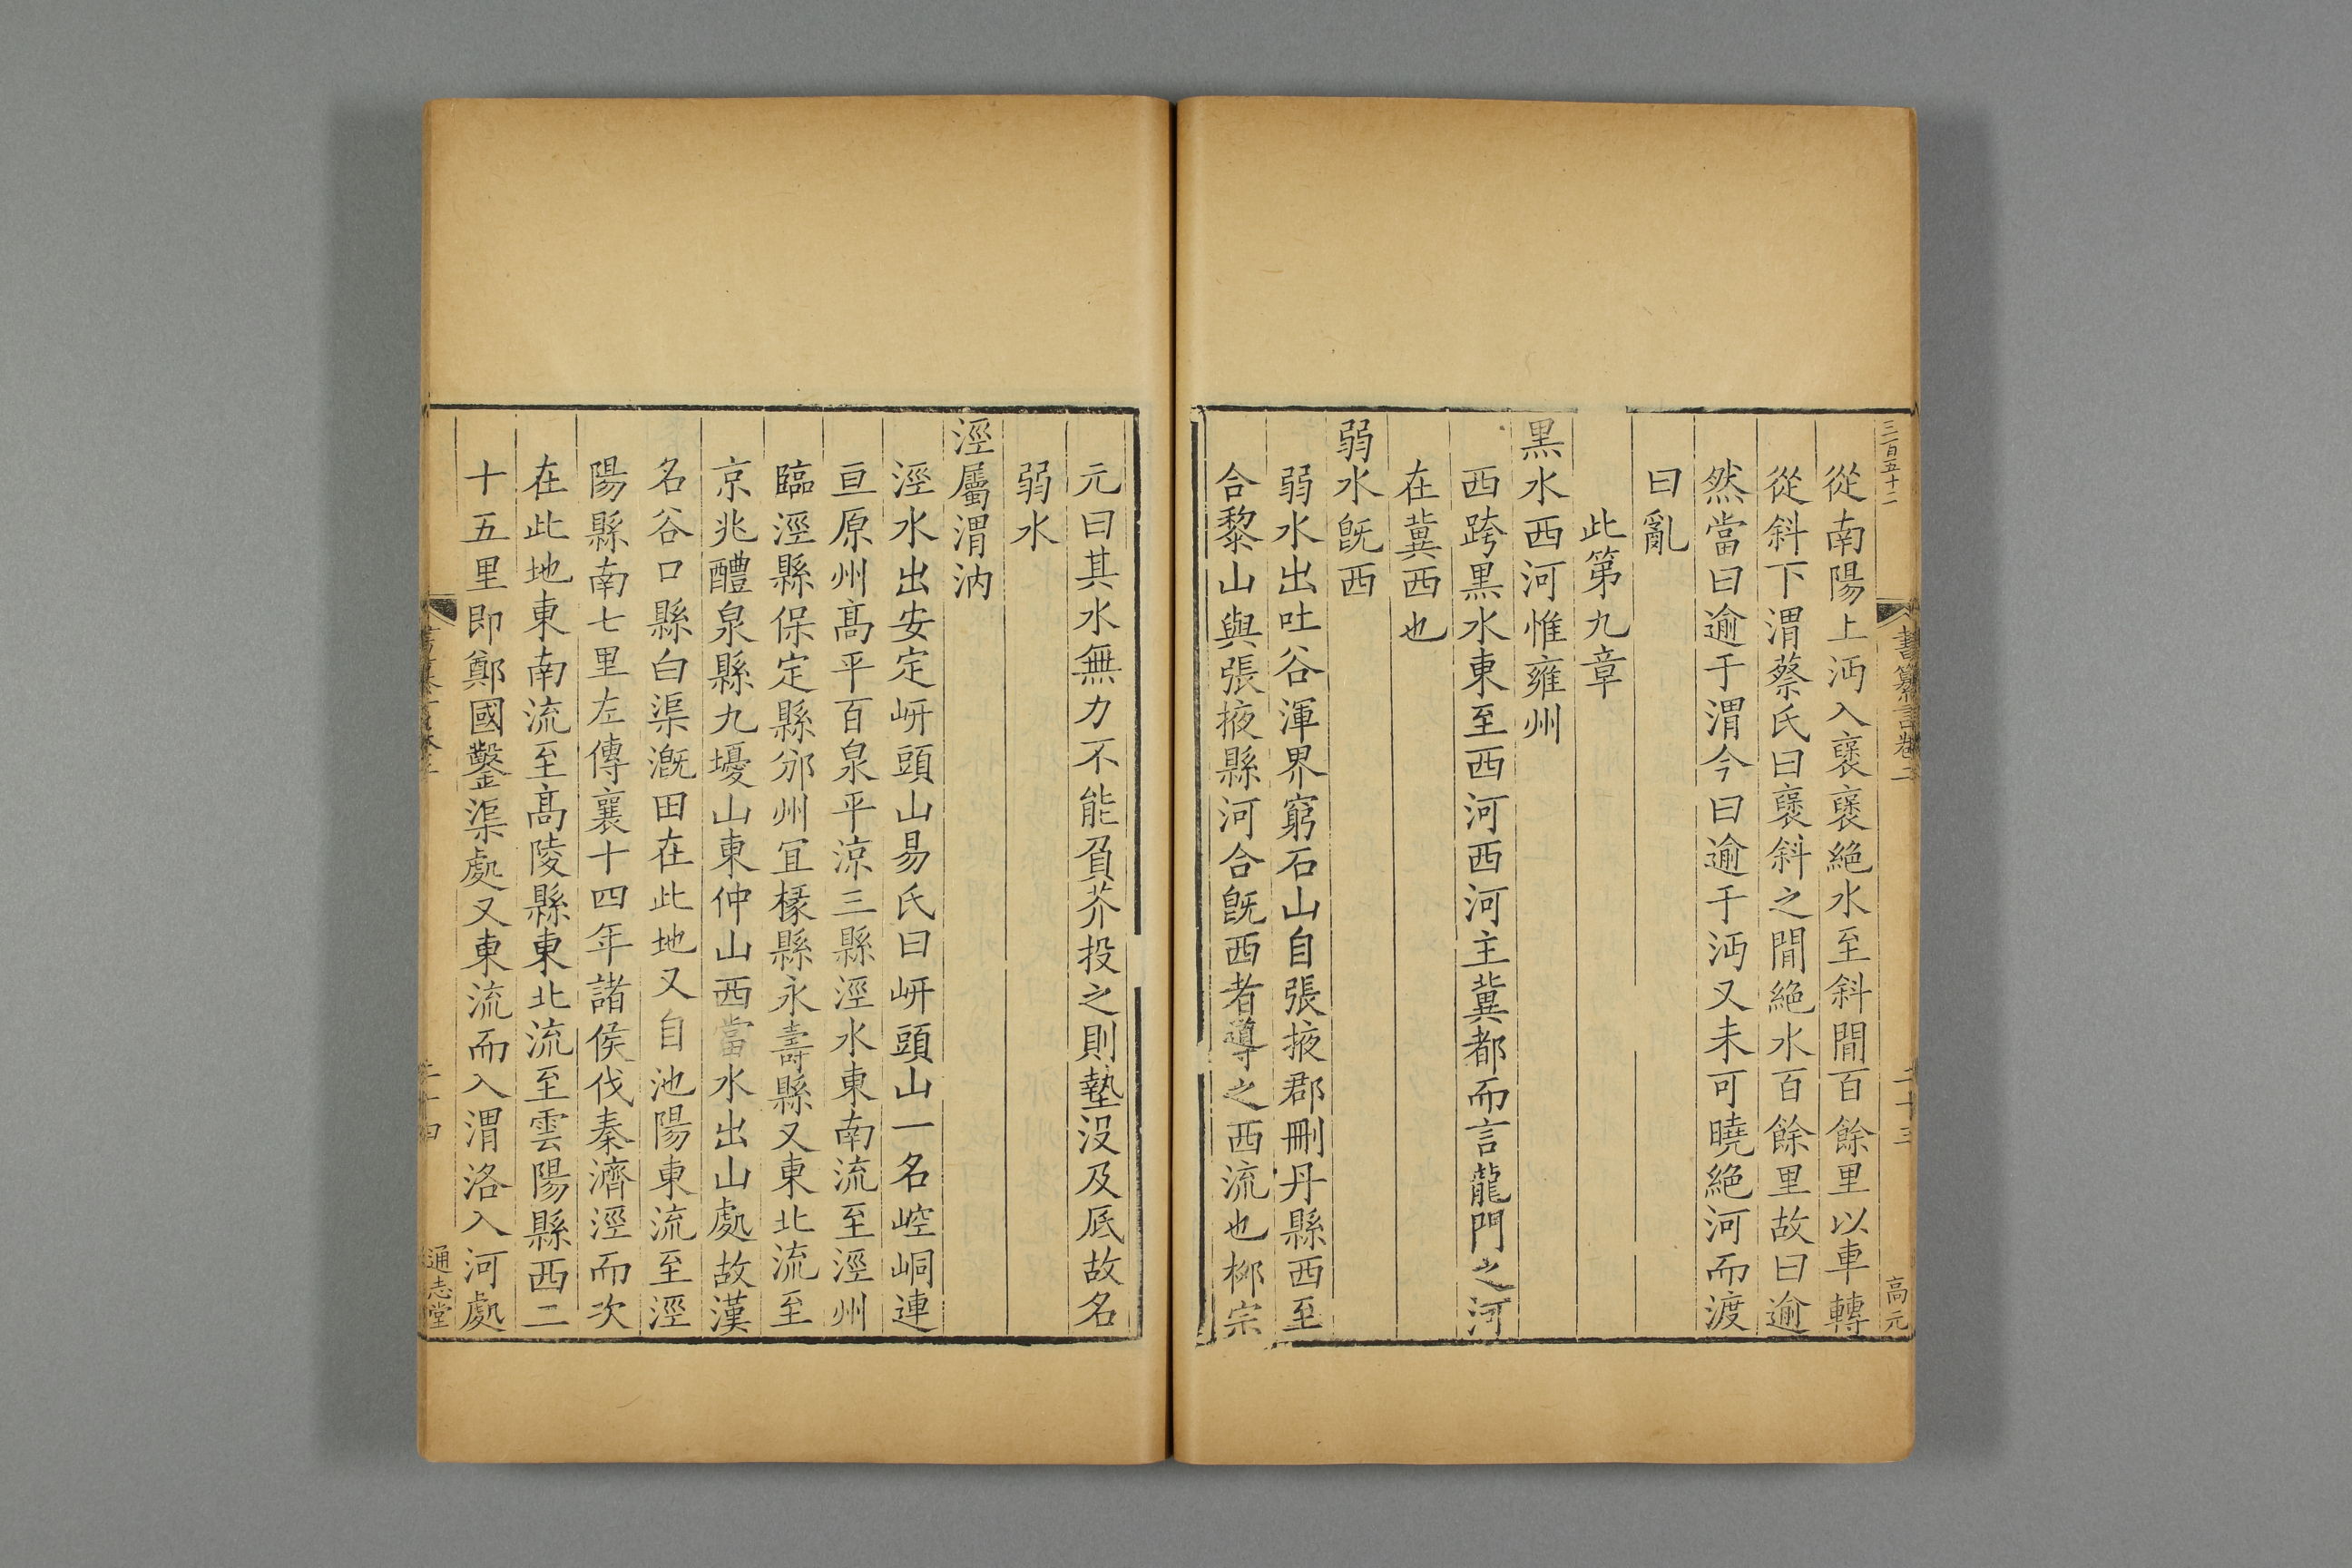 三百五十二
書纂言卷二
二十三
高元
從南陽上沔入褒褒絶水至斜閒百餘里以車轉
從斜下渭蔡氏曰褒斜之閒絶水百餘里故曰逾
然當曰逾于渭今曰逾于沔又未可曉絶河而渡
曰亂
此第九章
黒水西河惟雍州
西跨黒水東至西河西河主冀都而言龍門之河
在冀西也
弱水旣西
弱水出吐谷渾界窮石山自張掖郡刪丹縣西至
合黎山與張掖縣河合旣西者導之西流也栁宗
元曰其水無力不能負芥投之則墊没及底故名
弱水
涇屬渭汭
涇水出安定岍頭山易氏曰岍頭山一名崆峒連
亘原州髙平百泉平涼三縣涇水東南流至涇州
臨涇縣保定縣邠州冝祿縣永壽縣又東北流至
京兆醴泉縣九㠗山東仲山西當水出山處故漢
名谷口縣白渠漑田在此地又自池陽東流至涇
陽縣南七里左傳襄十四年諸侯伐秦濟涇而次
在此地東南流至髙陵縣東北流至雲陽縣西二
十五里即鄭國鑿渠處又東流而入渭洛入河處
二十四
通志堂